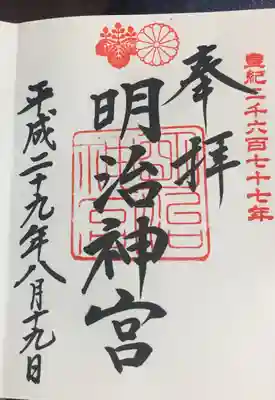 皇紀二千六百七十七年
奉拝
明治神宮
平成二十九年八月十九日